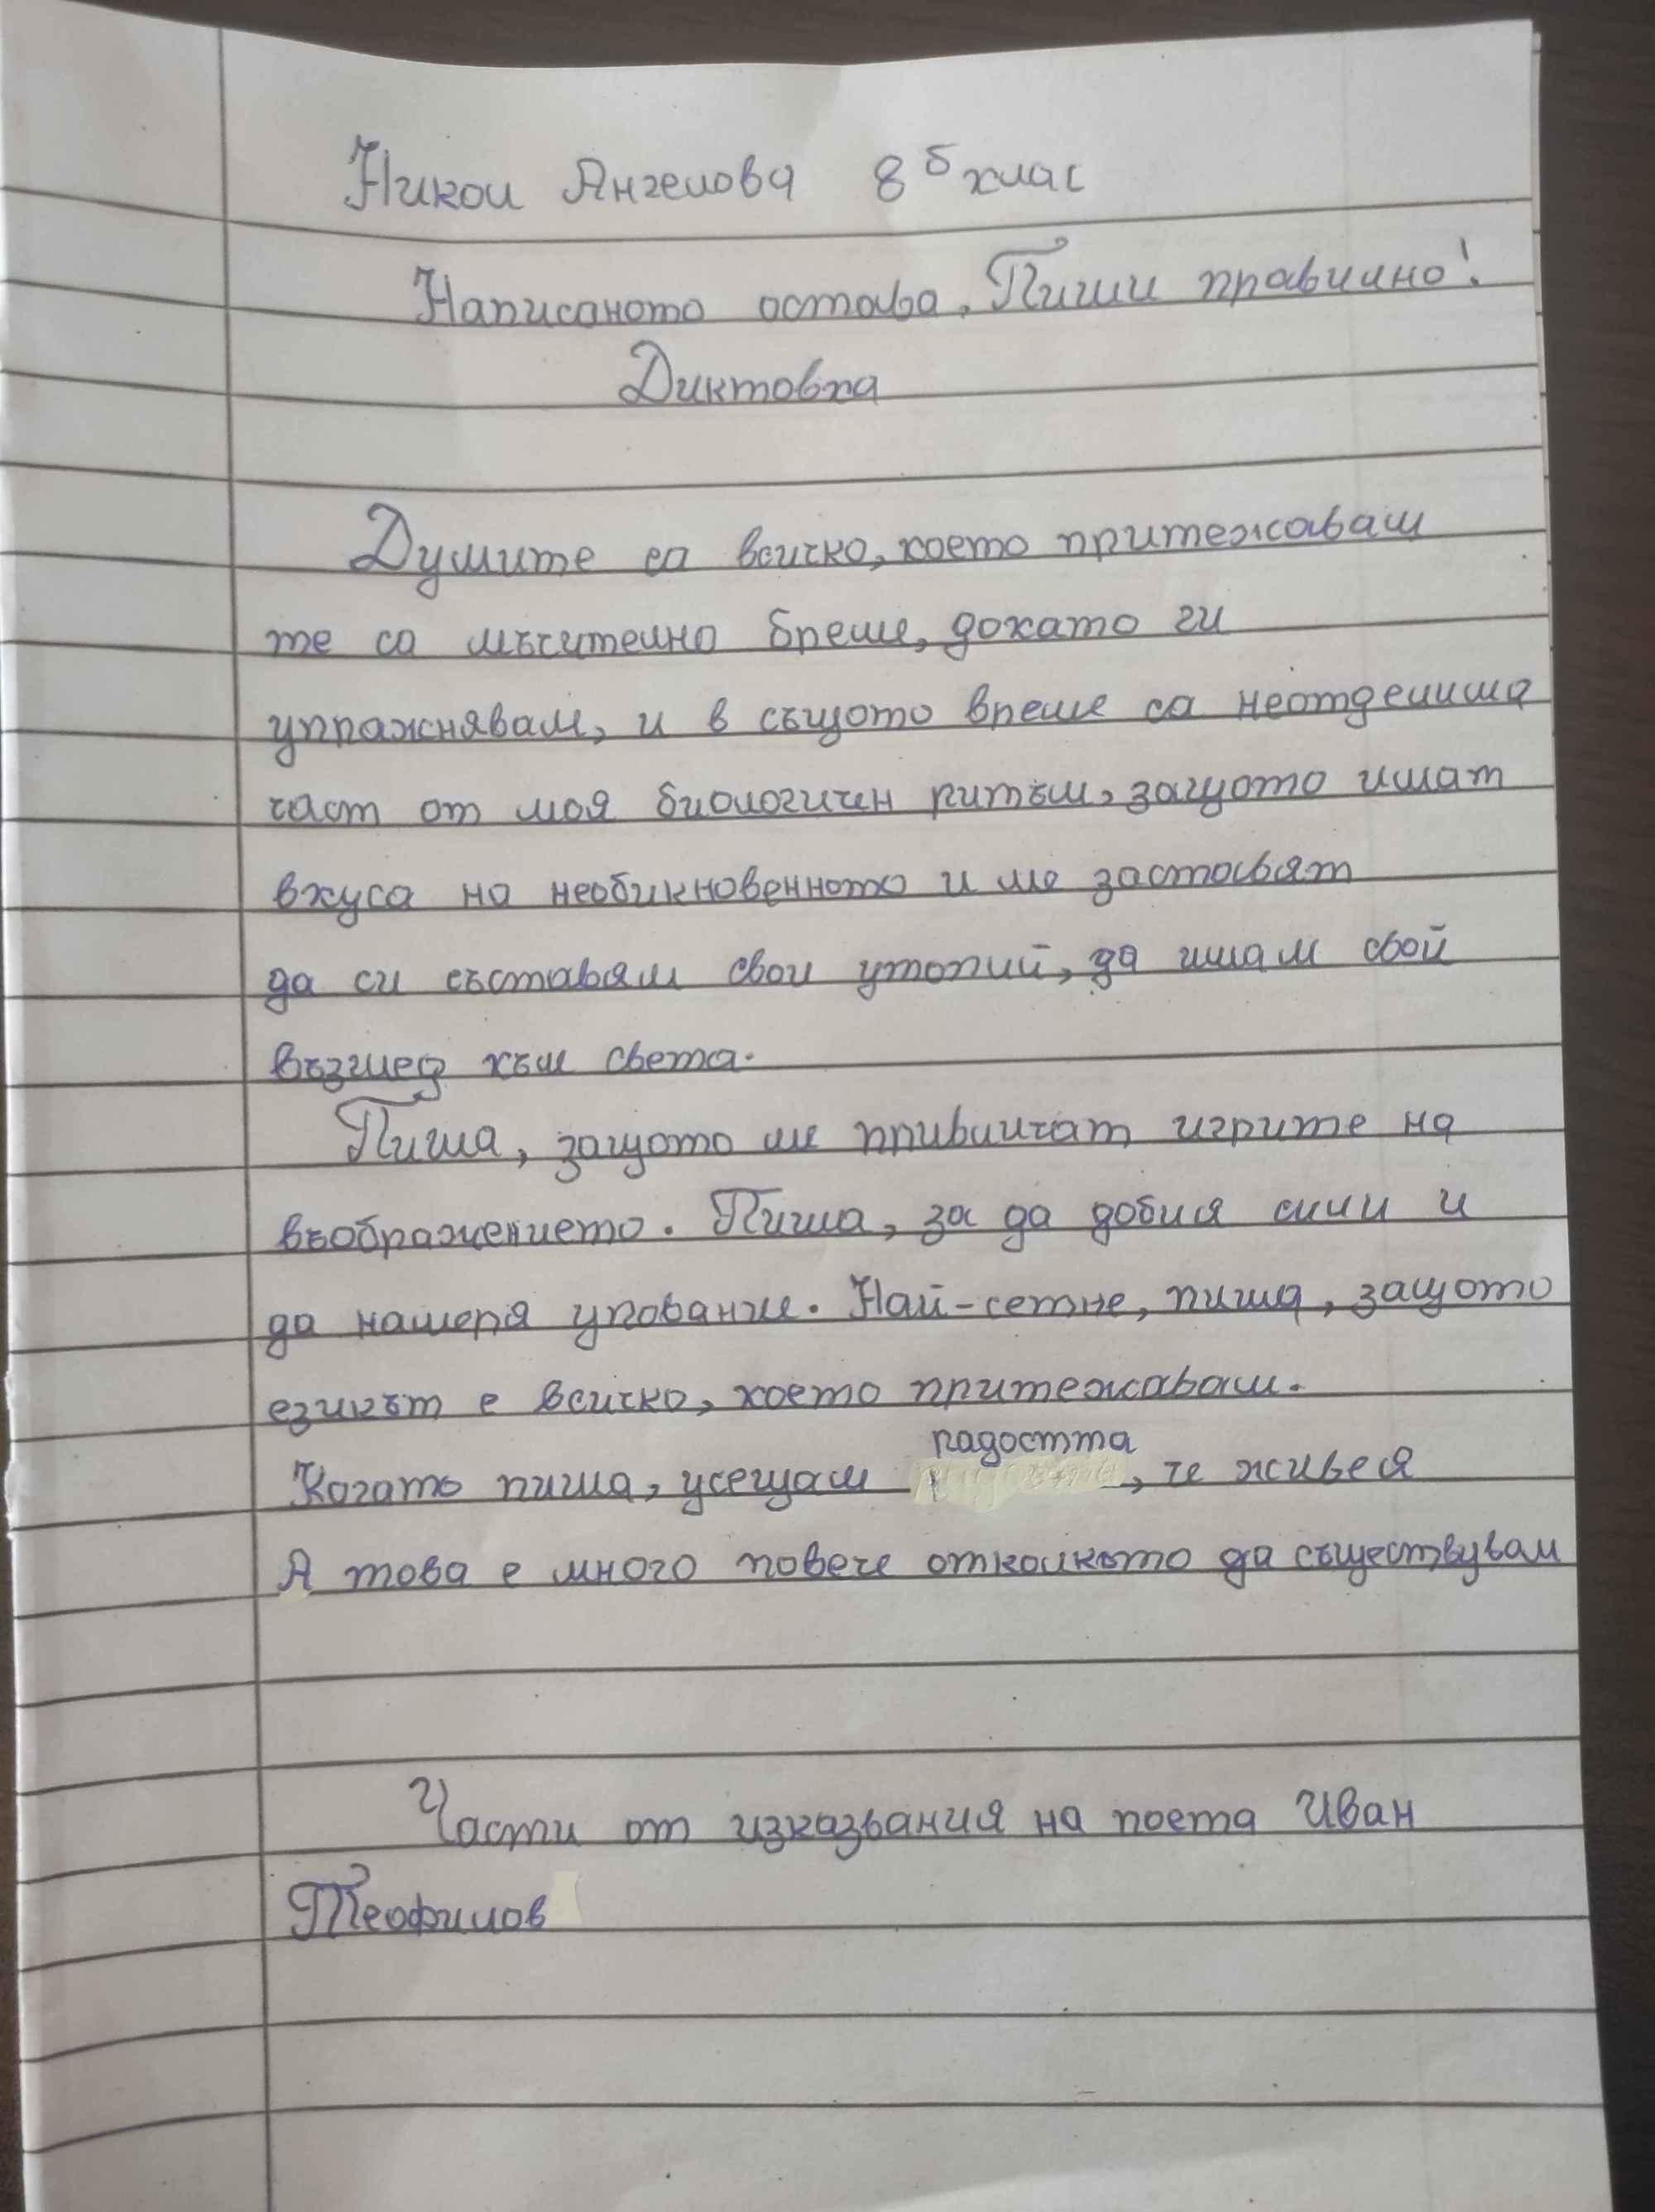 Никол Ангелова 8 б клас
Написаното остава. Пиши правилно!
Диктовка
Думите са всичко, което притежавам
те са мъчително бреме, докато ги
упражнявам, и в същото време са неотделима
част от моя биологичен ритъм, защото имат
вкуса на необикновенното и ме заставят
да си съставям свои утопий, да имам свой
възглед към света.
Пиша, защото ме привличат игрите на
въображението. Пиша, за да добия сили и
да намеря упование. Най-сетне, пиша, защото
езикът е всичко, което притежавам.
Когато пиша, усещам радостта, че живея
А това е много повече отколкото да съществувам
Части от изказвания на поета Иван
Теофилов